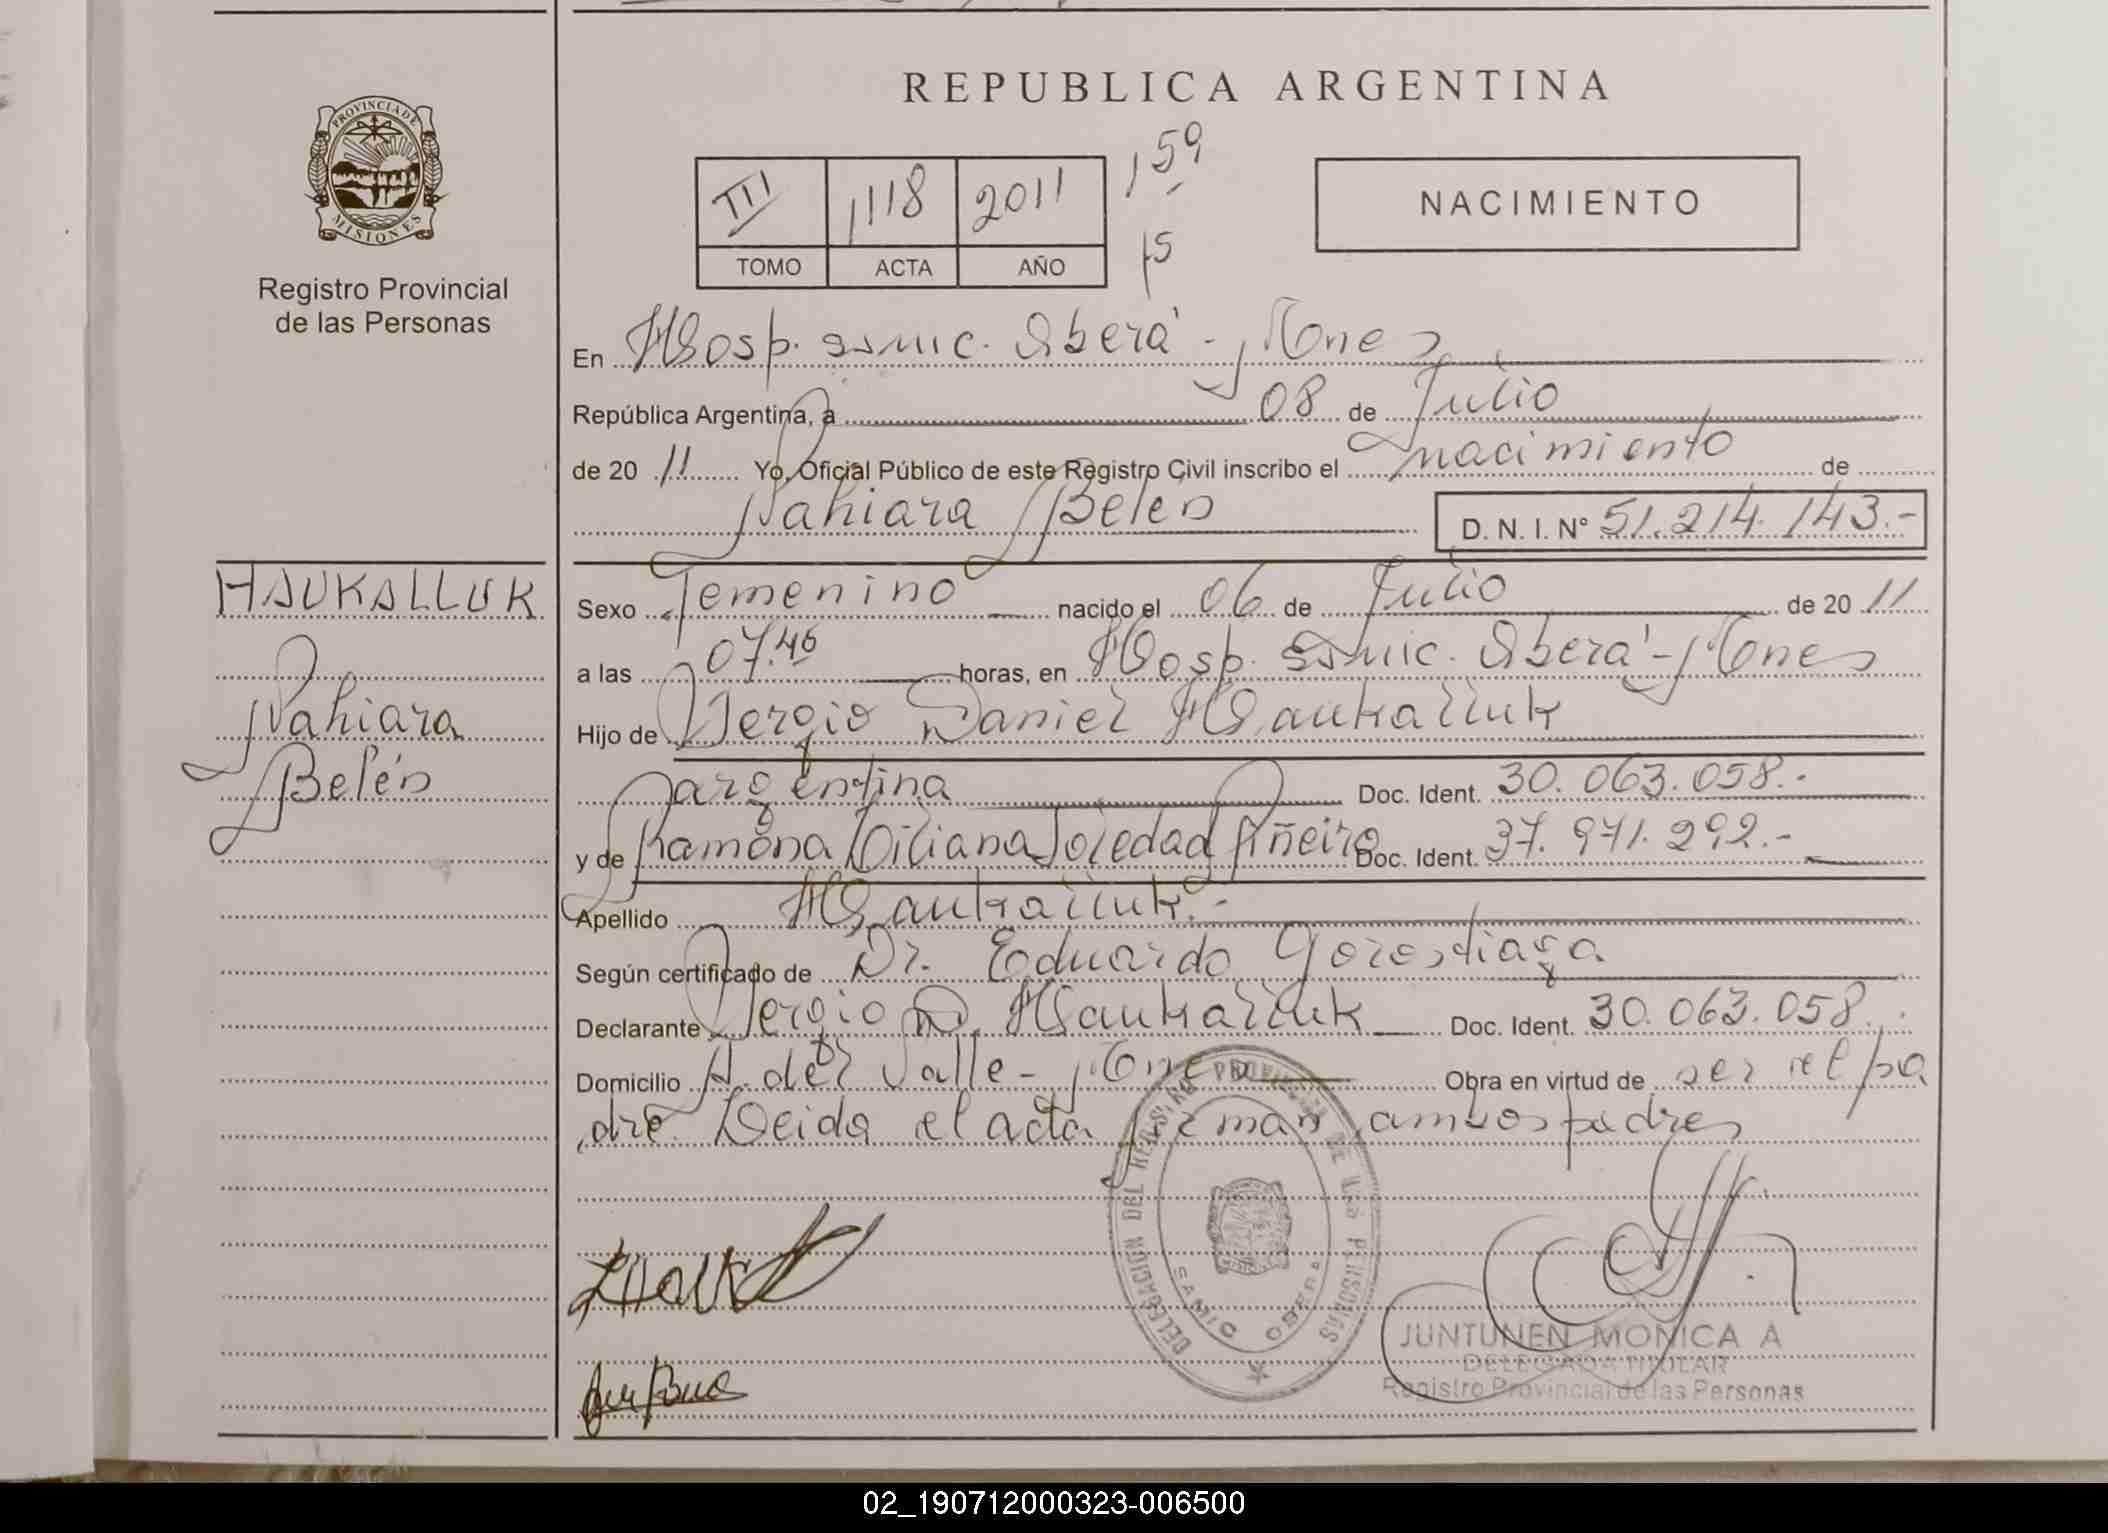 REPUBLICA ARGENTINA
PROVINCIA DE
MISIONES
Registro Provincial
de las Personas
III 1118 2011 159
TOMO ACTA AÑO 15
NACIMIENTO
En Hosp. ssmic. Oberá - Mnes
República Argentina, a 08 de Julio
de 20 11 Yo, Oficial Público de este Registro Civil inscribo el nacimiento de
Nahiara Belén D. N. I. Nº 51.214.143.-
HAUKALLUK
Nahiara
Belén
Sexo Femenino nacido el 06 de Julio de 20 11
a las 07.46 horas, en Hosp. ssmic. Oberá - Mnes
Hijo de Sergio Daniel Haukalluk
argentina Doc. Ident. 30.063.058.-
y de Ramona Liliana Soledad Piñeiro Doc. Ident. 37.971.292.-
Apellido Haukalluk.-
Según certificado de Dr. Eduardo Gorostiaga
Declarante Sergio D. Haukalluk Doc. Ident. 30.063.058.
Domicilio A. del Valle - Mnes Obra en virtud de ser el pa
dre. Leida el acta firman ambos padres
DELEGACION DEL REGISTRO PROVINCIAL DE LAS PERSONAS
OBERA
JUNTUNEN MONICA A
DELEGADA TITULAR
Registro Provincial de las Personas
02_190712000323-006500